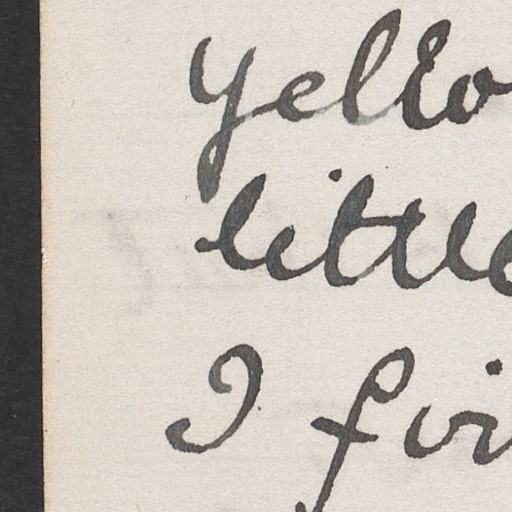 yello
little
I fi